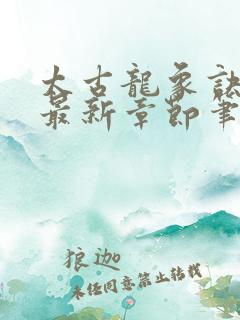 太古龍象訣
最新章節筆
狼迦
未經同意禁止轉載